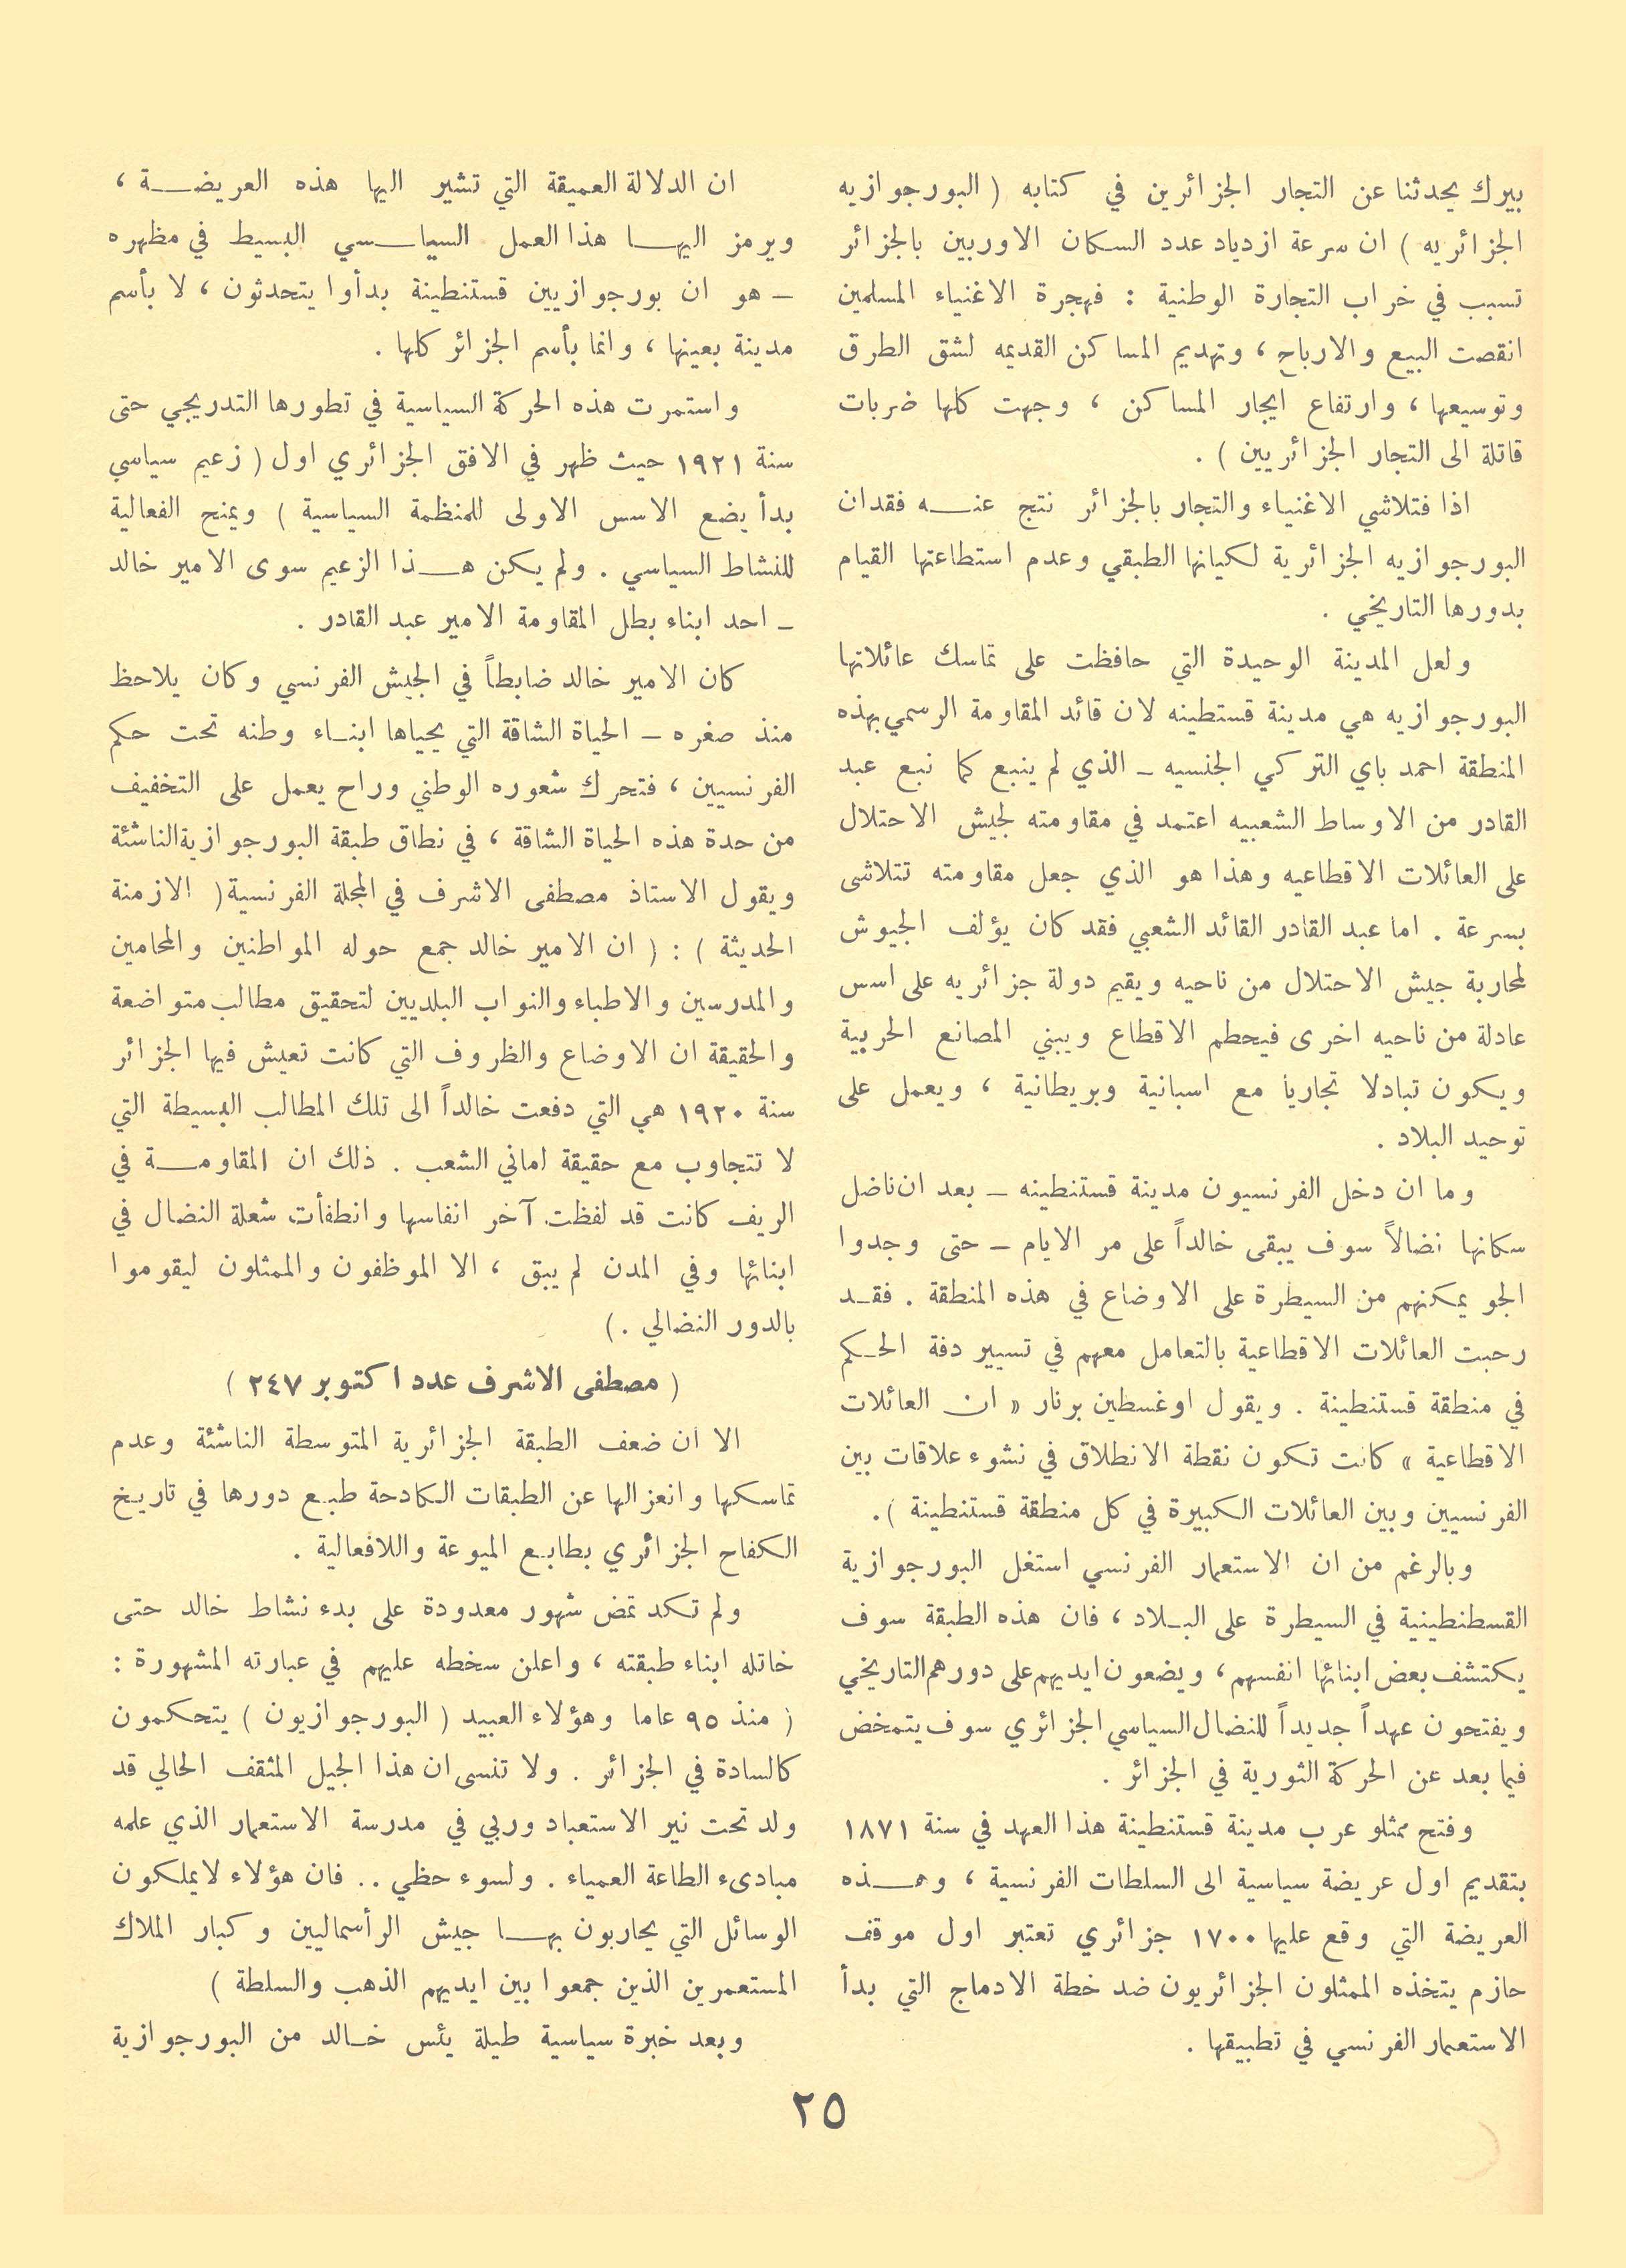 بيرك يحدثنا عن التجار الجزائرين في كتابه ( البورجوازيه
الجزائريه ) ان سرعة ازدياد عدد السكان الاوربين بالجزائر
تسبب في خراب التجارة الوطنية : فهجرة الاغنياء المسلمين
انقصت البيع والارباح ، وتهديم المساكن القديمه لشق الطرق
وتوسيعها ، وارتفاع ايجار المساكن ، وجهت كلها ضربات
قاتلة الى التجار الجزائريين ) .
اذا فتلاشي الاغنياء والتجار بالجزائر نتج عنه فقدان
البورجوازيه الجزائرية لكيانها الطبقي وعدم استطاعتها القيام
بدورها التاريخي .
ولعل المدينة الوحيدة التي حافظت على تماسك عائلاتها
البورجوازيه هي مدينة قستطينه لان قائد المقاومة الرسمي بهذه
المنطقة احمد باي التركي الجنسيه – الذي لم ينبع كما نبع عبد
القادر من الاوساط الشعبيه اعتمد في مقاومته لجيش الاحتلال
على العائلات الاقطاعيه وهذا هو الذي جعل مقاومته تتلاشى
بسرعة . اما عبد القادر القائد الشعبي فقد كان يؤلف الجيوش
لمحاربة جيش الاحتلال من ناحيه ويقيم دولة جزائريه على اسس
عادلة من ناحيه اخرى فيحطم الاقطاع ويبني المصانع الحربية
ويكون تبادلا تجاريا مع اسبانية وبريطانية ، ويعمل على
توحيد البلاد .
وما ان دخل الفرنسيون مدينة قستنطينه – بعد ان ناضل
سكانها نضالاً سوف يبقى خالداً على مر الايام – حتى وجدوا
الجو يمكنهم من السيطرة على الاوضاع في هذه المنطقة . فقد
رحبت العائلات الاقطاعية بالتعامل معهم في تسيير دفة الحكم
في منطقة قستنطينة . ويقول اوغسطين برنار « ان العائلات
الاقطاعية » كانت تكون نقطة الانطلاق في نشوء علاقات بين
الفرنسيين وبين العائلات الكبيرة في كل منطقة قستنطينة ) .
وبالرغم من ان الاستعمار الفرنسي استغل البورجوازية
القسطنطينية في السيطرة على البلاد ، فان هذه الطبقة سوف
يكتشف بعض ابنائها انفسهم ، ويضعون ايديهم على دورهم التاريخي
ويفتحون عهداً جديداً للنضال السياسي الجزائري سوف يتمخض
فيما بعد عن الحركة الثورية في الجزائر .
وفتح ممثلو عرب مدينة قستنطينة هذا العهد في سنة ١٨٧١
بتقديم اول عريضة سياسية الى السلطات الفرنسية ، وهذه
العريضة التي وقع عليها ١٧٠٠ جزائري تعتبر اول موقف
حازم يتخذه الممثلون الجزائريون ضد خطة الادماج التي بدأ
الاستعمار الفرنسي في تطبيقها .
ان الدلالة العميقة التي تشير اليها هذه العريضة ،
ويرمز اليها هذا العمل السياسي البسيط في مظهره
– هو ان بورجوازيين قستنطينة بدأوا يتحدثون ، لا بأسم
مدينة بعينها ، وانما بأسم الجزائر كلها .
واستمرت هذه الحركة السياسية في تطورها التدريجي حتى
سنة ١٩٢١ حيث ظهر في الافق الجزائري اول ( زعيم سياسي
بدأ يضع الاسس الاولى للمنظمة السياسية ) ويمنح الفعالية
للنشاط السياسي . ولم يكن هذا الزعيم سوى الامير خالد
– احد ابناء بطل المقاومة الامير عبد القادر .
كان الامير خالد ضابطاً في الجيش الفرنسي وكان يلاحظ
منذ صغره – الحياة الشاقة التي يحياها ابناء وطنه تحت حكم
الفرنسيين ، فتحرك شعوره الوطني وراح يعمل على التخفيف
من حدة هذه الحياة الشاقة ، في نطاق طبقة البورجوازية الناشئة
ويقول الاستاذ مصطفى الاشرف في المجلة الفرنسية ( الازمنة
الحديثة ) : ( ان الامير خالد جمع حوله المواطنين والمحامين
والمدرسين والاطباء والنواب البلديين لتحقيق مطالب متواضعة
والحقيقة ان الاوضاع والظروف التي كانت تعيش فيها الجزائر
سنة ١٩٢٠ هي التي دفعت خالداً الى تلك المطالب البسيطة التي
لا تتجاوب مع حقيقة اماني الشعب . ذلك ان المقاومة في
الريف كانت قد لفظت آخر انفاسها وانطفأت شعلة النضال في
ابنائها وفي المدن لم يبق ، الا الموظفون والممثلون ليقوموا
بالدور النضالي . )
( مصطفى الاشرف عدد اكتوبر ٢٤٧ )
الا ان ضعف الطبقة الجزائرية المتوسطة الناشئة وعدم
تماسكها وانعزالها عن الطبقات الكادحة طبع دورها في تاريخ
الكفاح الجزائري بطابع الميوعة واللافعالية .
ولم تكد تمض شهور معدودة على بدء نشاط خالد حتى
خاتله ابناء طبقته ، واعلن سخطه عليهم في عبارته المشهورة :
( منذ ٩٥ عاما وهؤلاء العبيد ( البورجوازيون ) يتحكمون
كالسادة في الجزائر . ولا تنسى ان هذا الجيل المثقف الحالي قد
ولد تحت نير الاستعباد وربي في مدرسة الاستعمار الذي علمه
مبادىء الطاعة العمياء . ولسوء حظي .. فان هؤلاء لا يملكون
الوسائل التي يحاربون بها جيش الرأسماليين وكبار الملاك
المستعمرين الذين جمعوا بين ايديهم الذهب والسلطة )
وبعد خبرة سياسية طيلة يئس خالد من البورجوازية
٢٥